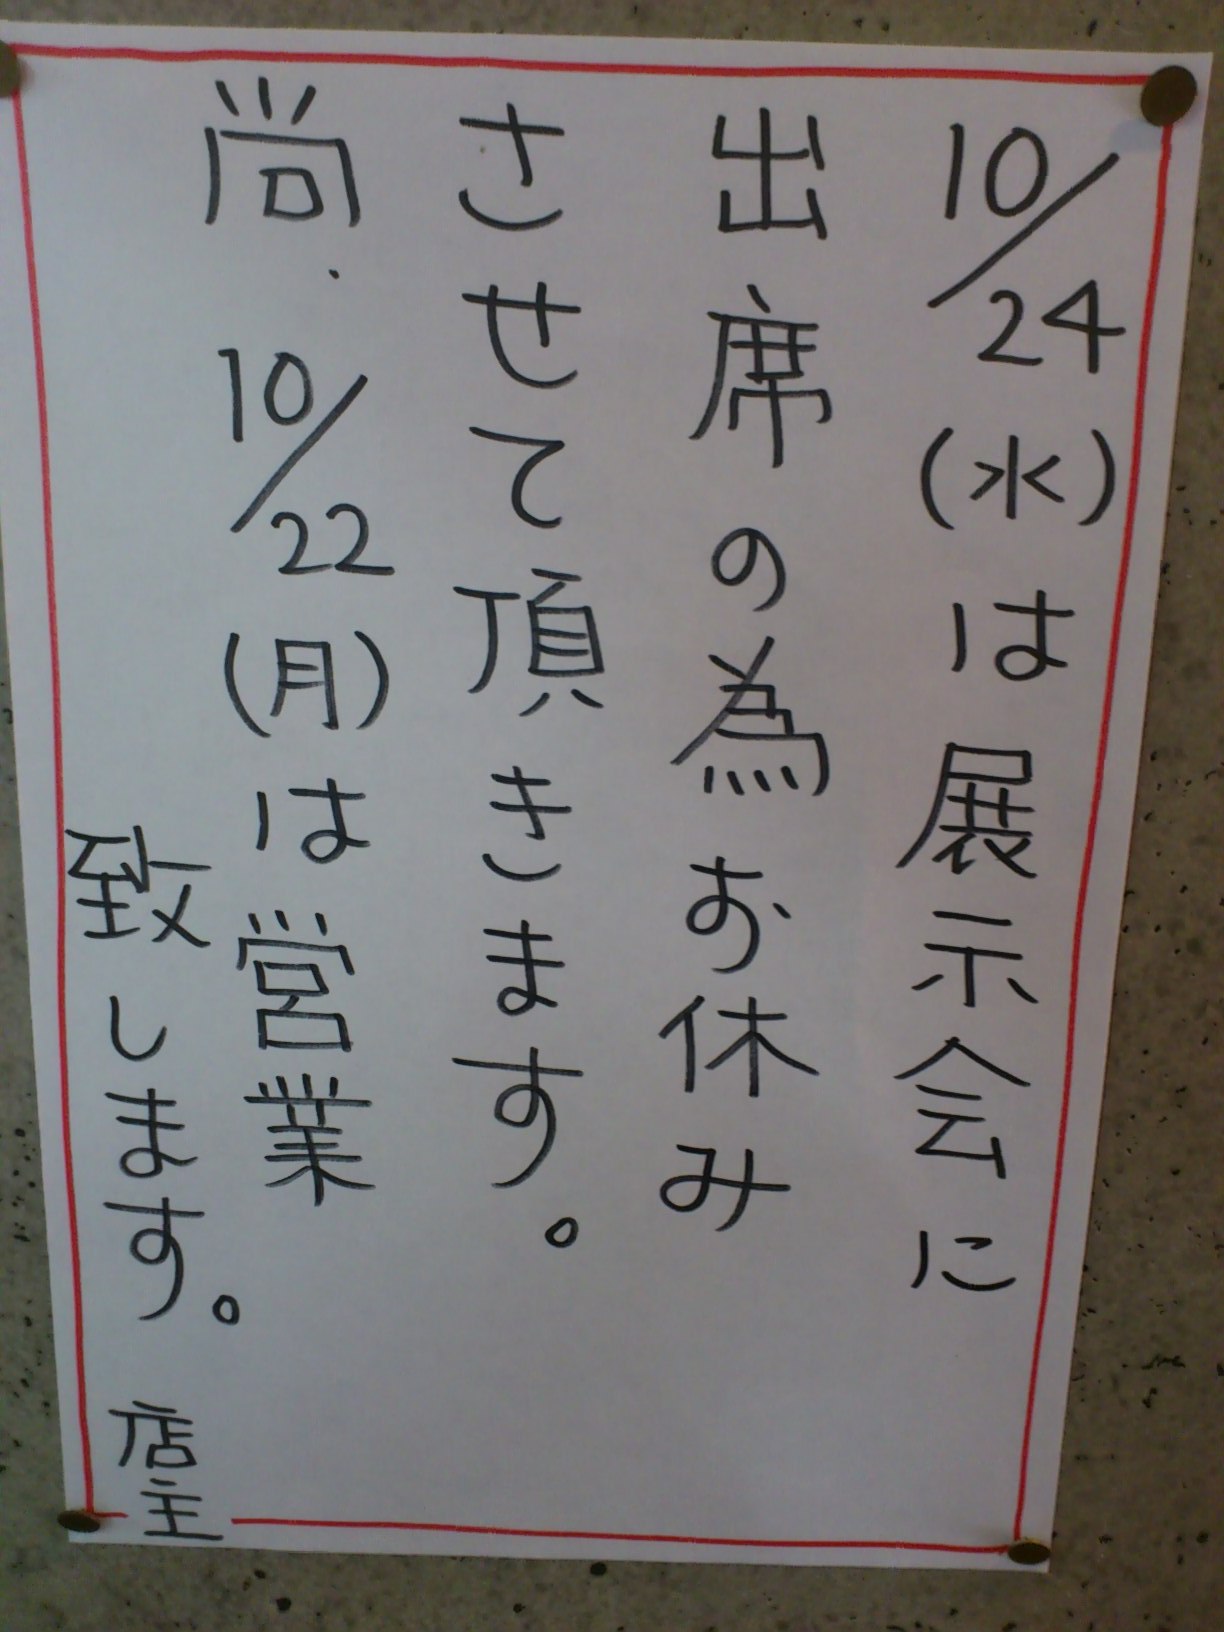 10/24(水)は展示会に
出席の為お休み
させて頂きます。
尚.10/22(月)は営業
致します。
店主